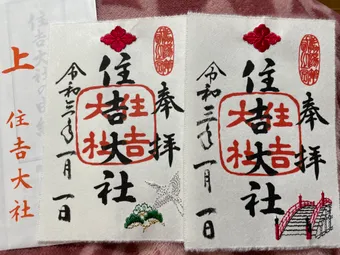 奉拝
住吉大社
住吉
大社
令和三年一月一日
奉拝
住吉大社
住吉
大社
令和二年一月一日
上
住吉大社